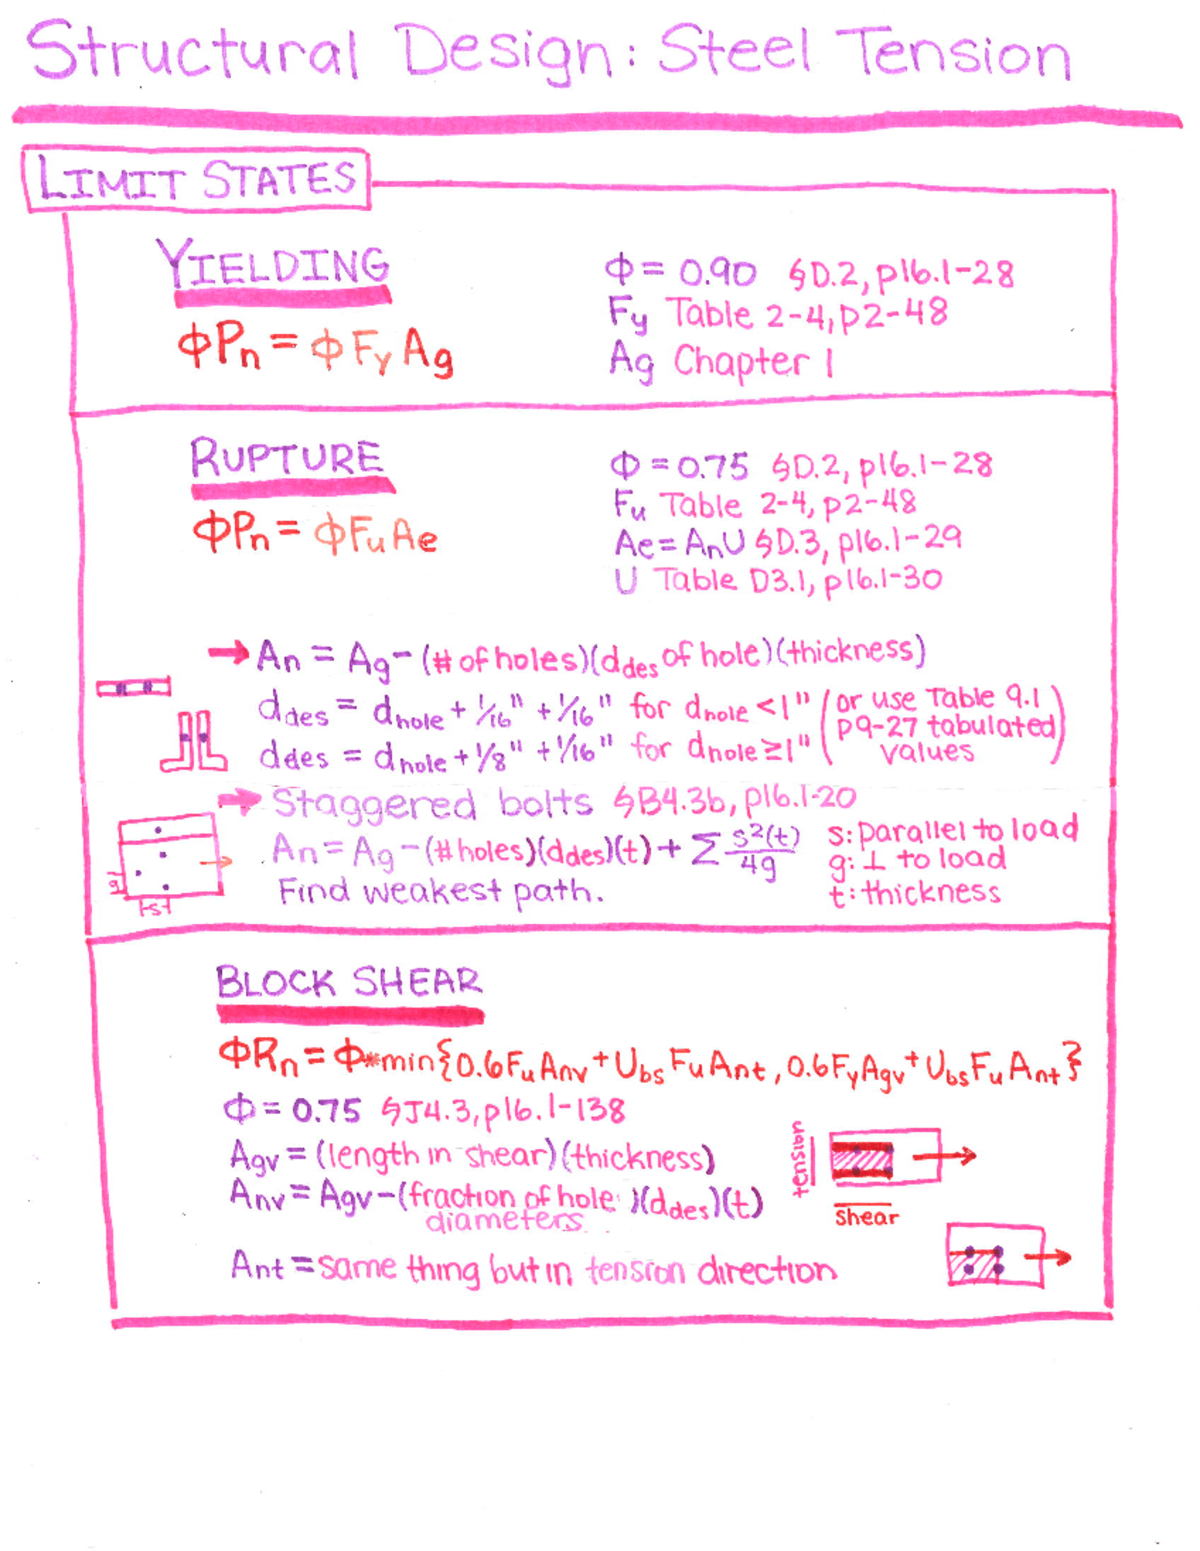 Structural Design: Steel Tension
LIMIT STATES
YIELDING
ΦPn = ΦFyAg
Φ = 0.90 §D.2, p16.1-28
Fy Table 2-4, p2-48
Ag Chapter 1
RUPTURE
ΦPn = ΦFuAe
Φ = 0.75 §D.2, p16.1-28
Fu Table 2-4, p2-48
Ae = AnU §D.3, p16.1-29
U Table D3.1, p16.1-30
→ An = Ag - (# of holes)(ddes of hole)(thickness)
ddes = dhole + 1/16" + 1/16" for dhole < 1"
ddes = dhole + 1/8" + 1/16" for dhole ≥ 1"
(or use Table 9.1
p9-27 tabulated
values)
→ Staggered bolts §B4.3b, p16.1-20
An = Ag - (# holes)(ddes)(t) + Σ s²(t)/4g
Find weakest path.
s: parallel to load
g: ⊥ to load
t: thickness
g
s
BLOCK SHEAR
ΦRn = Φ*min{0.6FuAnv + UbsFuAnt, 0.6FyAgv + UbsFuAnt}
Φ = 0.75 §J4.3, p16.1-138
Agv = (length in shear)(thickness)
Anv = Agv - (fraction of hole diameters)(ddes)(t)
Ant = same thing but in tension direction
tension
shear